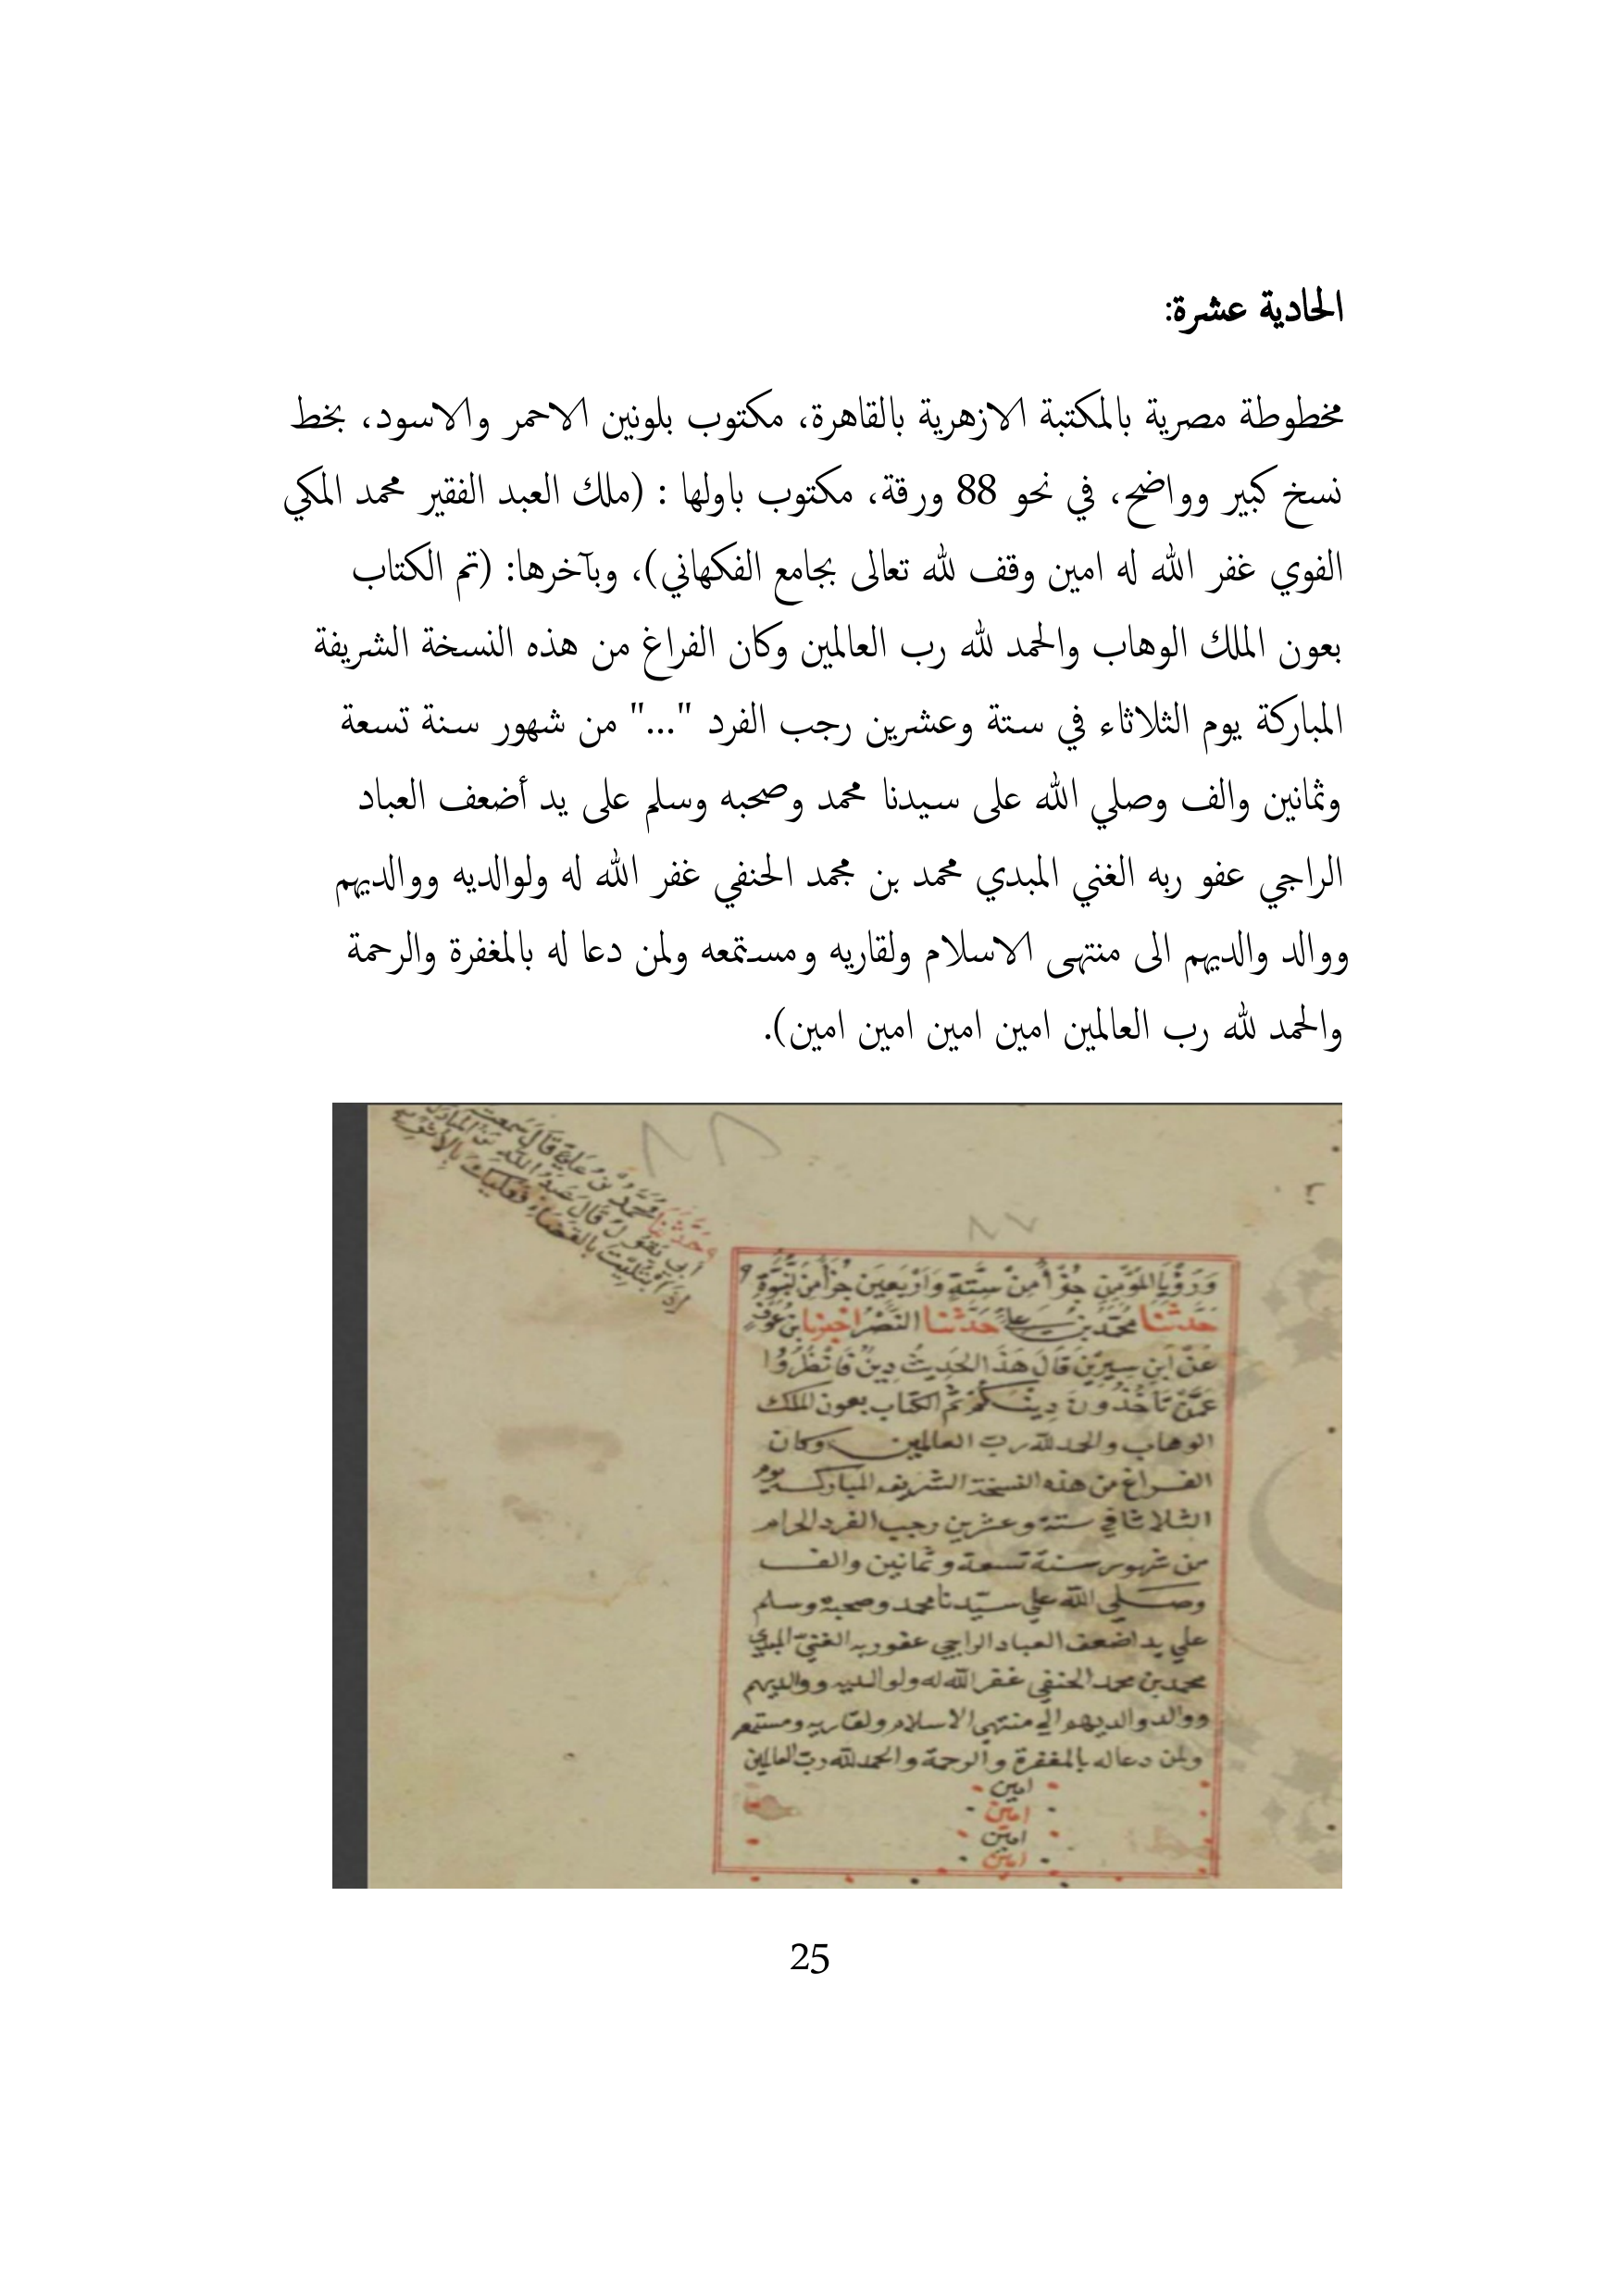 الحادية عشرة:
مخطوطة مصرية بالمكتبة الازهرية بالقاهرة، مكتوب بلونين الاحمر والاسود، بخط
نسخ كبير وواضح، في نحو 88 ورقة، مكتوب باولها : (ملك العبد الفقير محمد المكي
الفوي غفر الله له امين وقف لله تعالى بجامع الفكهاني)، وبآخرها: (تم الكتاب
بعون الملك الوهاب والحمد لله رب العالمين وكان الفراغ من هذه النسخة الشريفة
المباركة يوم الثلاثاء في ستة وعشرين رجب الفرد "..." من شهور سنة تسعة
وثمانين والف وصلي الله على سيدنا محمد وصحبه وسلم على يد أضعف العباد
الراجي عفو ربه الغني المبدي محمد بن مجمد الحنفي غفر الله له ولوالديه ووالديهم
ووالد والديهم الى منتهى الاسلام ولقاريه ومستمعه ولمن دعا له بالمغفرة والرحمة
والحمد لله رب العالمين امين امين امين امين).
وحدثنا محمد بن علي قال سمعت
أبي يقول قال عبد الله بن المبارك
إذا ابتليت بالقضاء فعليك بالأثر
٨٨
٨٧
وَرُؤْيَا المُؤْمِنِ جُزْأٌ مِنْ سِتَّةٍ وَأَرْبَعِينَ جُزْأً مِنَ النُّبُوَّةِ
حَدَّثَنَا مُحَمَّدُ بْنُ عَلِيٍّ حَدَّثَنَا النَّضْرُ اخبرنا ابن عَوْفٍ
عَنْ ابْنِ سِيرِينَ قَالَ هَذَا الحَدِيثُ دِينٌ فَانْظُرُوا
عَمَّنْ تَأْخُذُونَ دِينَكُمْ تم الكتاب بعون الملك
الوهاب والحمد لله رب العالمين وكان
الفراغ من هذه النسخة الشريفه المباركه يوم
الثلاثا في ستة وعشرين رجب الفرد الحرام
من شهور سنة تسعة وثمانين والف
وصلي الله علي سيدنا محمد وصحبه وسلم
علي يد اضعف العباد الراجي عفو ربه الغني المبدي
محمد بن محمد الحنفي غفر الله له ولوالديه ووالديهم
ووالد والديهم الي منتهي الاسلام ولقاريه ومستمعه
ولمن دعا له بالمغفرة والرحمة والحمد لله رب العالمين
امين
امين
امين
امين
25